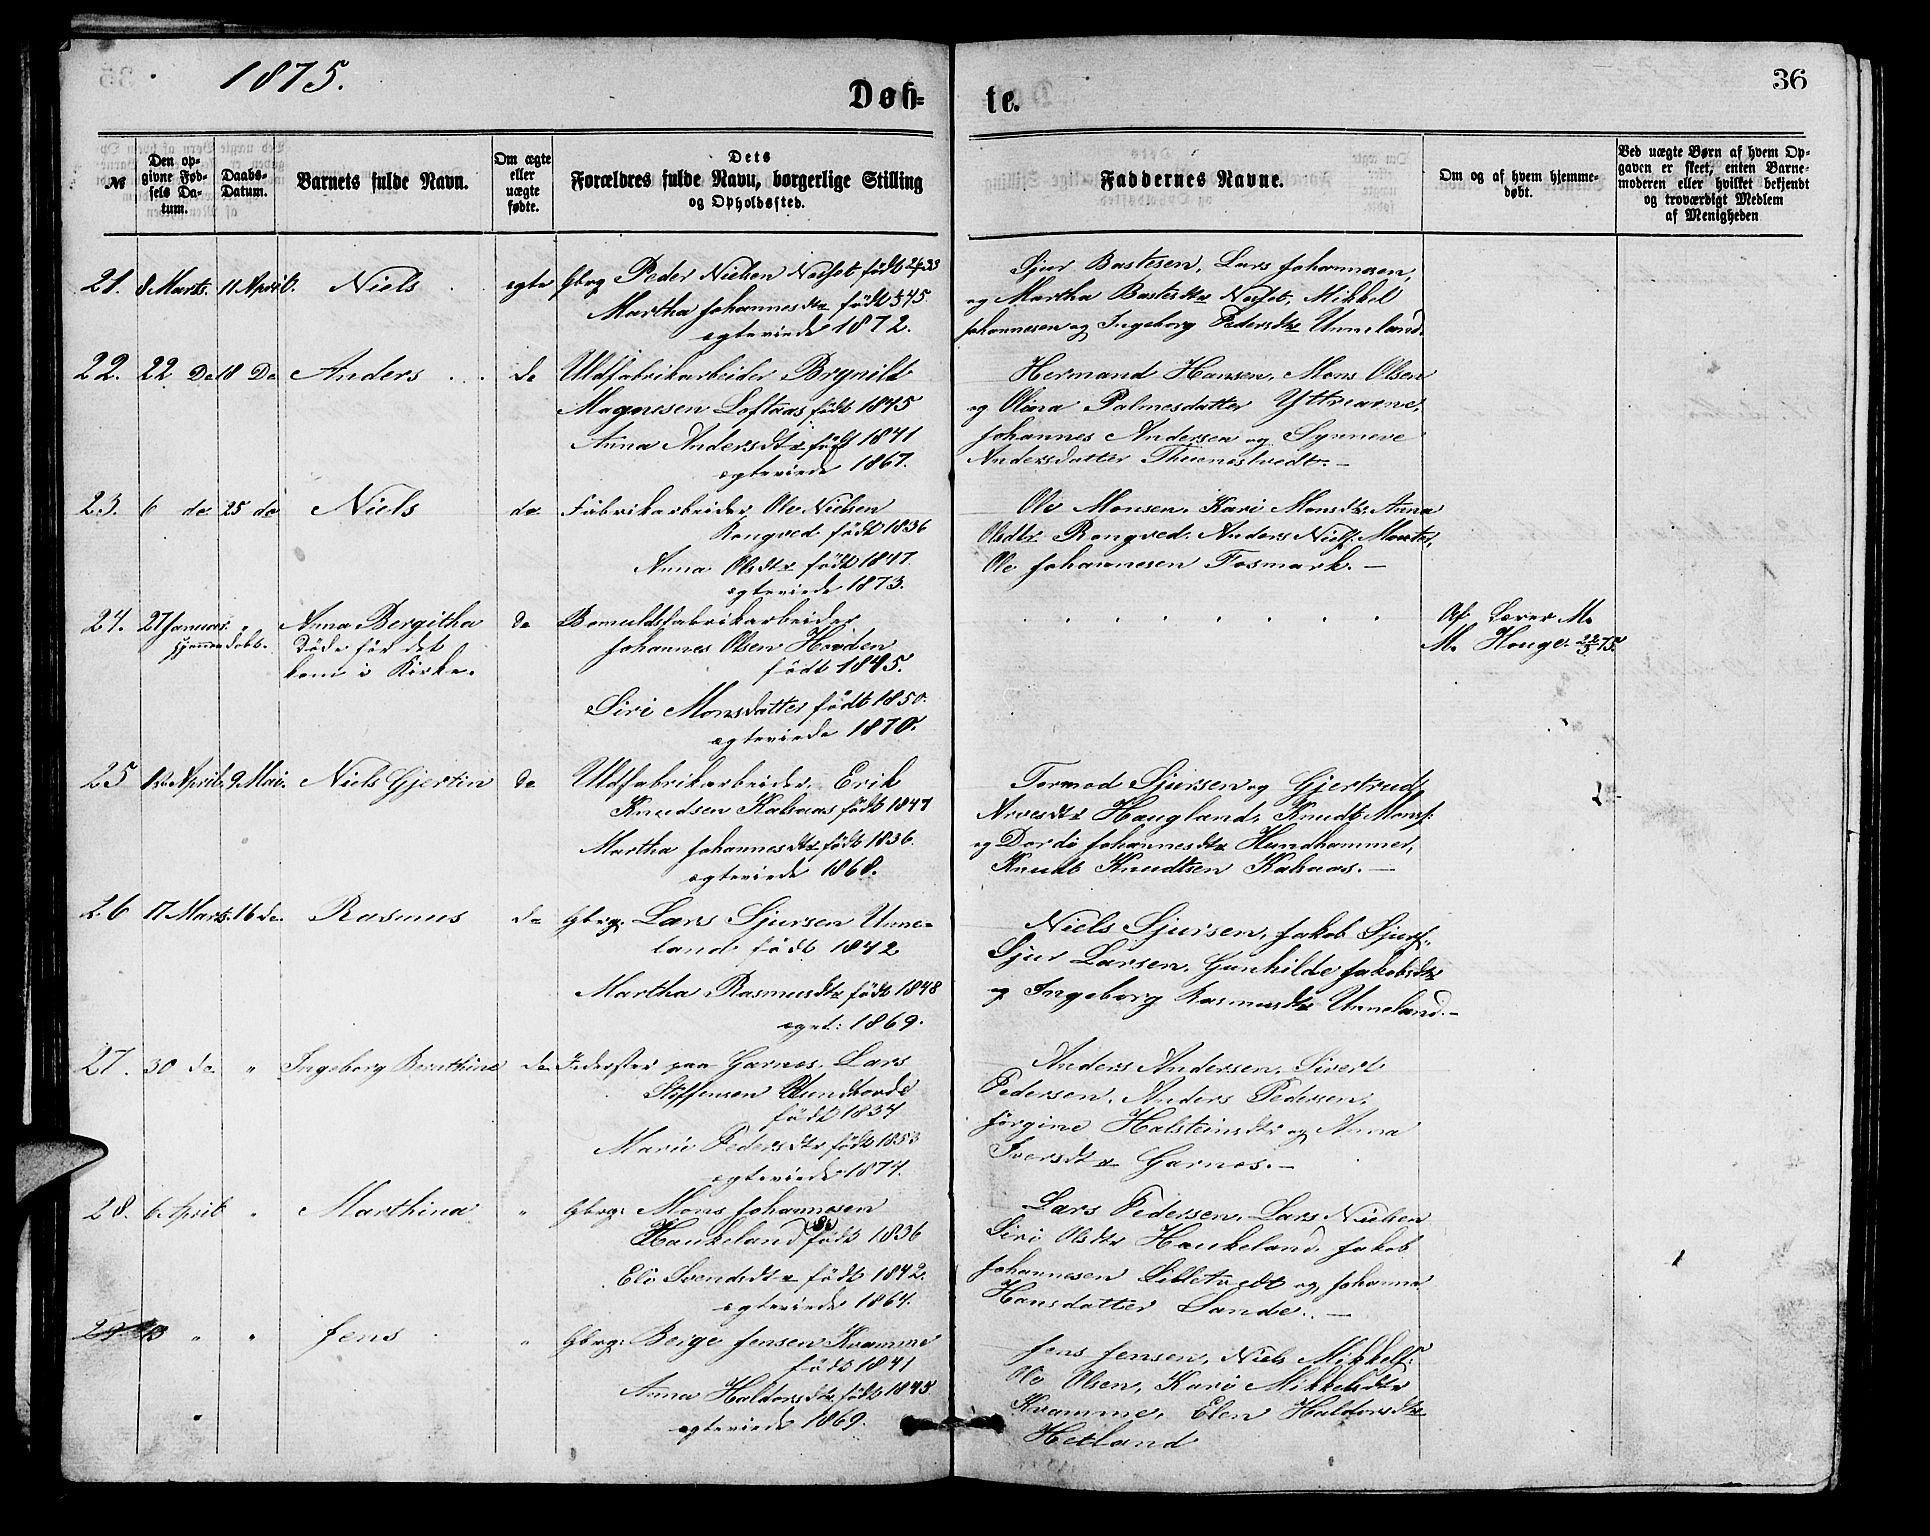 1875.
Døb=
te.
36
№
Den op-
givne Fød-
sels Da-
tum.
Daabs-
Datum.
Barnets fulde Navn.
Om ægte
eller
uægte
fødte.
Dets
Forældres fulde Navn, borgerlige Stilling
og Opholdssted.
Faddernes Navne.
Om og af hvem hjemme-
døbt.
Ved uægte Børn af hvem Op-
gaven er skeet, enten Barne-
moderen eller hvilket bekjendt
og troværdigt Medlem
af Menigheden
21. 8 Marts. 11 April. Niels ægte Gbrg Peder Nielsen født
Martha Johannesdtr født 45
ægteviede 1872.
Sjur Bastesen, Lars Johannesen,
og Martha Bastesdtr Mikkel
Johannesen og Ingeborg Pedersdtr Unneland.
22. 22 Do 18 Do Anders do Uldfabrikarbeider Brynild
Magnesen Loftaas, født 1845
Anna Andersdtr født 1841
ægteviede 1867.
Hermand Hansen, Mons Olsen
og Olina Palmesdatter Yttrearne,
Johannes Andersen og Synneve
Andersdatter Thunestvedt.-
23. 6 do 25 do Niels do Fabrikarbeider Ole Nielsen
Rongved født 1836
Anna Olsdtr født 1847
ægteviede 1873.
Ole Monsen, Kari Monsdtr Anna
Olsdtr Rongved. Anders Niels:
Ole Johannesen Fosmark.-
24. 27 Januar. " Anna Bergitha do Bomuldsfabrikarbeider
hjemmedøbt. Døde før det
kom i Kirke.
Johannes Olsen Hovden
født 1845.
Siri Monsdatter født 1850.
ægteviede 1870.
Af Lærer M.
M. Houge 75.
25 April. 9 Mai. Niels Gjertin do Uldfabrikarbeider. Erik
Knudsen Kalsaas født 1847
Martha Johannesdtr født 1836.
ægteviede 1868.
Tormod Sjursen og Gjertrud
Arvesdtr Haugland, Knudt Mons:
og Dordi Johannesdtr Hundhammer,
Knudt Knudtsen Kalsaas.-
26 17 Marts. 16 do. Rasmus do Gbrg: Lars Sjursen Unne-
land født 1842
Martha Rasmusdtr født 1848
ægt: 1869.
Niels Sjursen, Jakob Sjurs:
Sjur Larsen, Gunhilde Jakobsdtr
og Ingeborg Rasmusdtr Unneland.-
27. 30 do. " Ingeborg Berithine do Inderster paa Garnes, Lars
Stoffensen
født 1834
Mari Pedersdtr født 1853
ægteviede 1874.
Anders Andersen, Sivert
Pedersen, Anders Pedersen,
Jørgine Halsteinsdtr og Anna
Iversdtr Garnes.-
28. 6 April " Marthina " Gbrg: Mons Johannesen
Haukeland født 1836
Eli Svendsdtr født 1842.
ægteviede 1864.
Lars Pedersen, Lars Nielsen
Siri Olsdtr Haukeland. Jakob
Johannesen Lilletvedt og Johanna
Hansdatter Sande.-
29 " " Jens " Gbrg: Berge Jensen Kvamme
født 1841
Anna Haldorsdtr født 1845
ægteviede 1869.
Jens Jensen, Niels Mikkels:
Ole Olsen, Kari Mikkelsdtr
Kvamme, Elen Haldorsdtr
Hetland